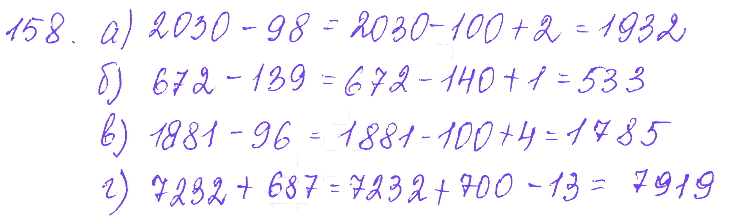 158. а) 2030 - 98 = 2030 - 100 + 2 = 1932
б) 672 - 139 = 672 - 140 + 1 = 533
в) 1881 - 96 = 1881 - 100 + 4 = 1785
г) 7232 + 687 = 7232 + 700 - 13 = 7919